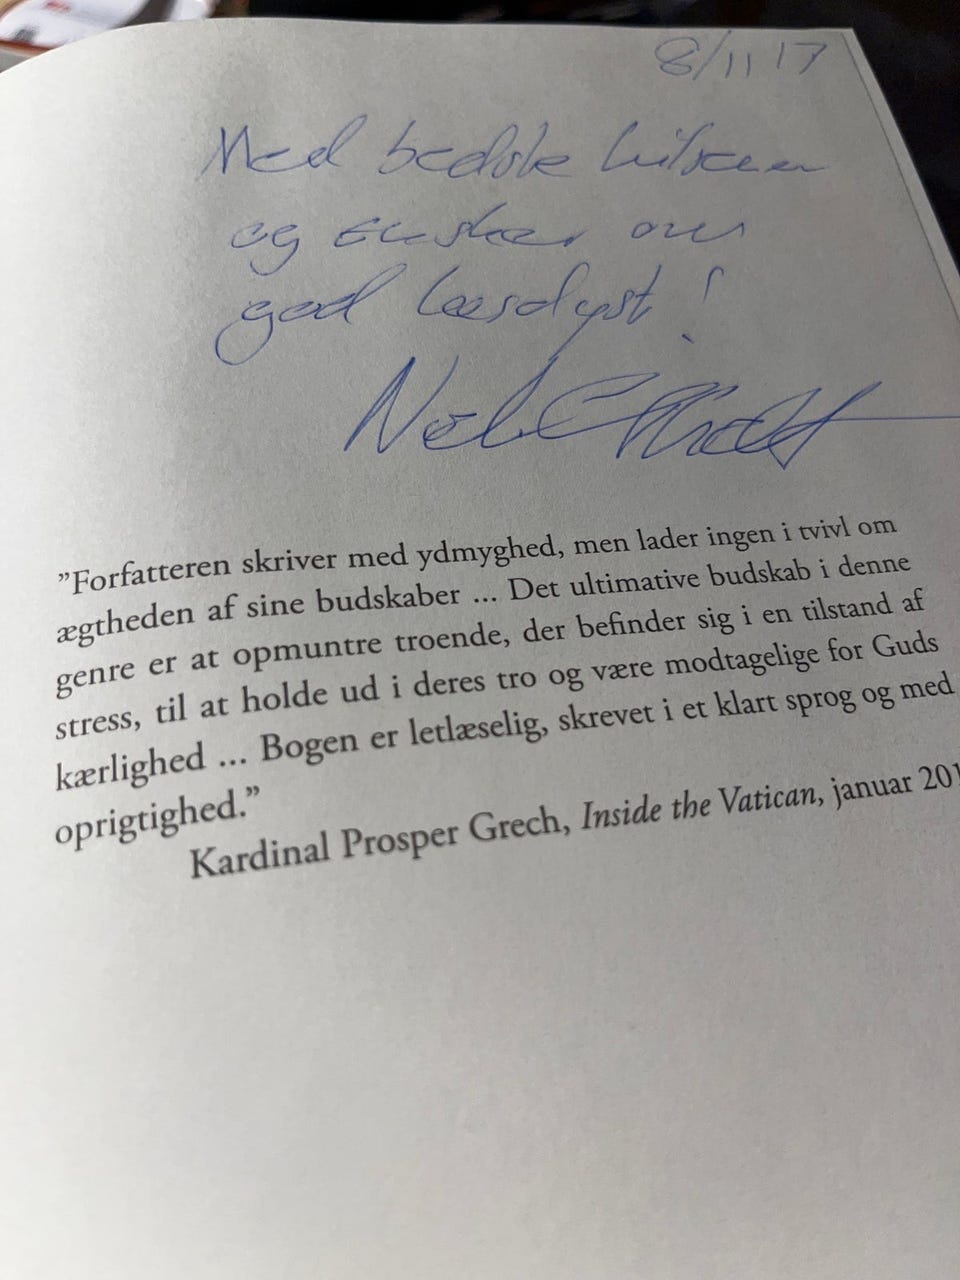 8/11 17
Med bedste hilsener
og ønsker om
god læselyst!
”Forfatteren skriver med ydmyghed, men lader ingen i tvivl om
ægtheden af sine budskaber ... Det ultimative budskab i denne
genre er at opmuntre troende, der befinder sig i en tilstand af
stress, til at holde ud i deres tro og være modtagelige for Guds
kærlighed ... Bogen er letlæselig, skrevet i et klart sprog og med
oprigtighed.”
Kardinal Prosper Grech, Inside the Vatican, januar 201